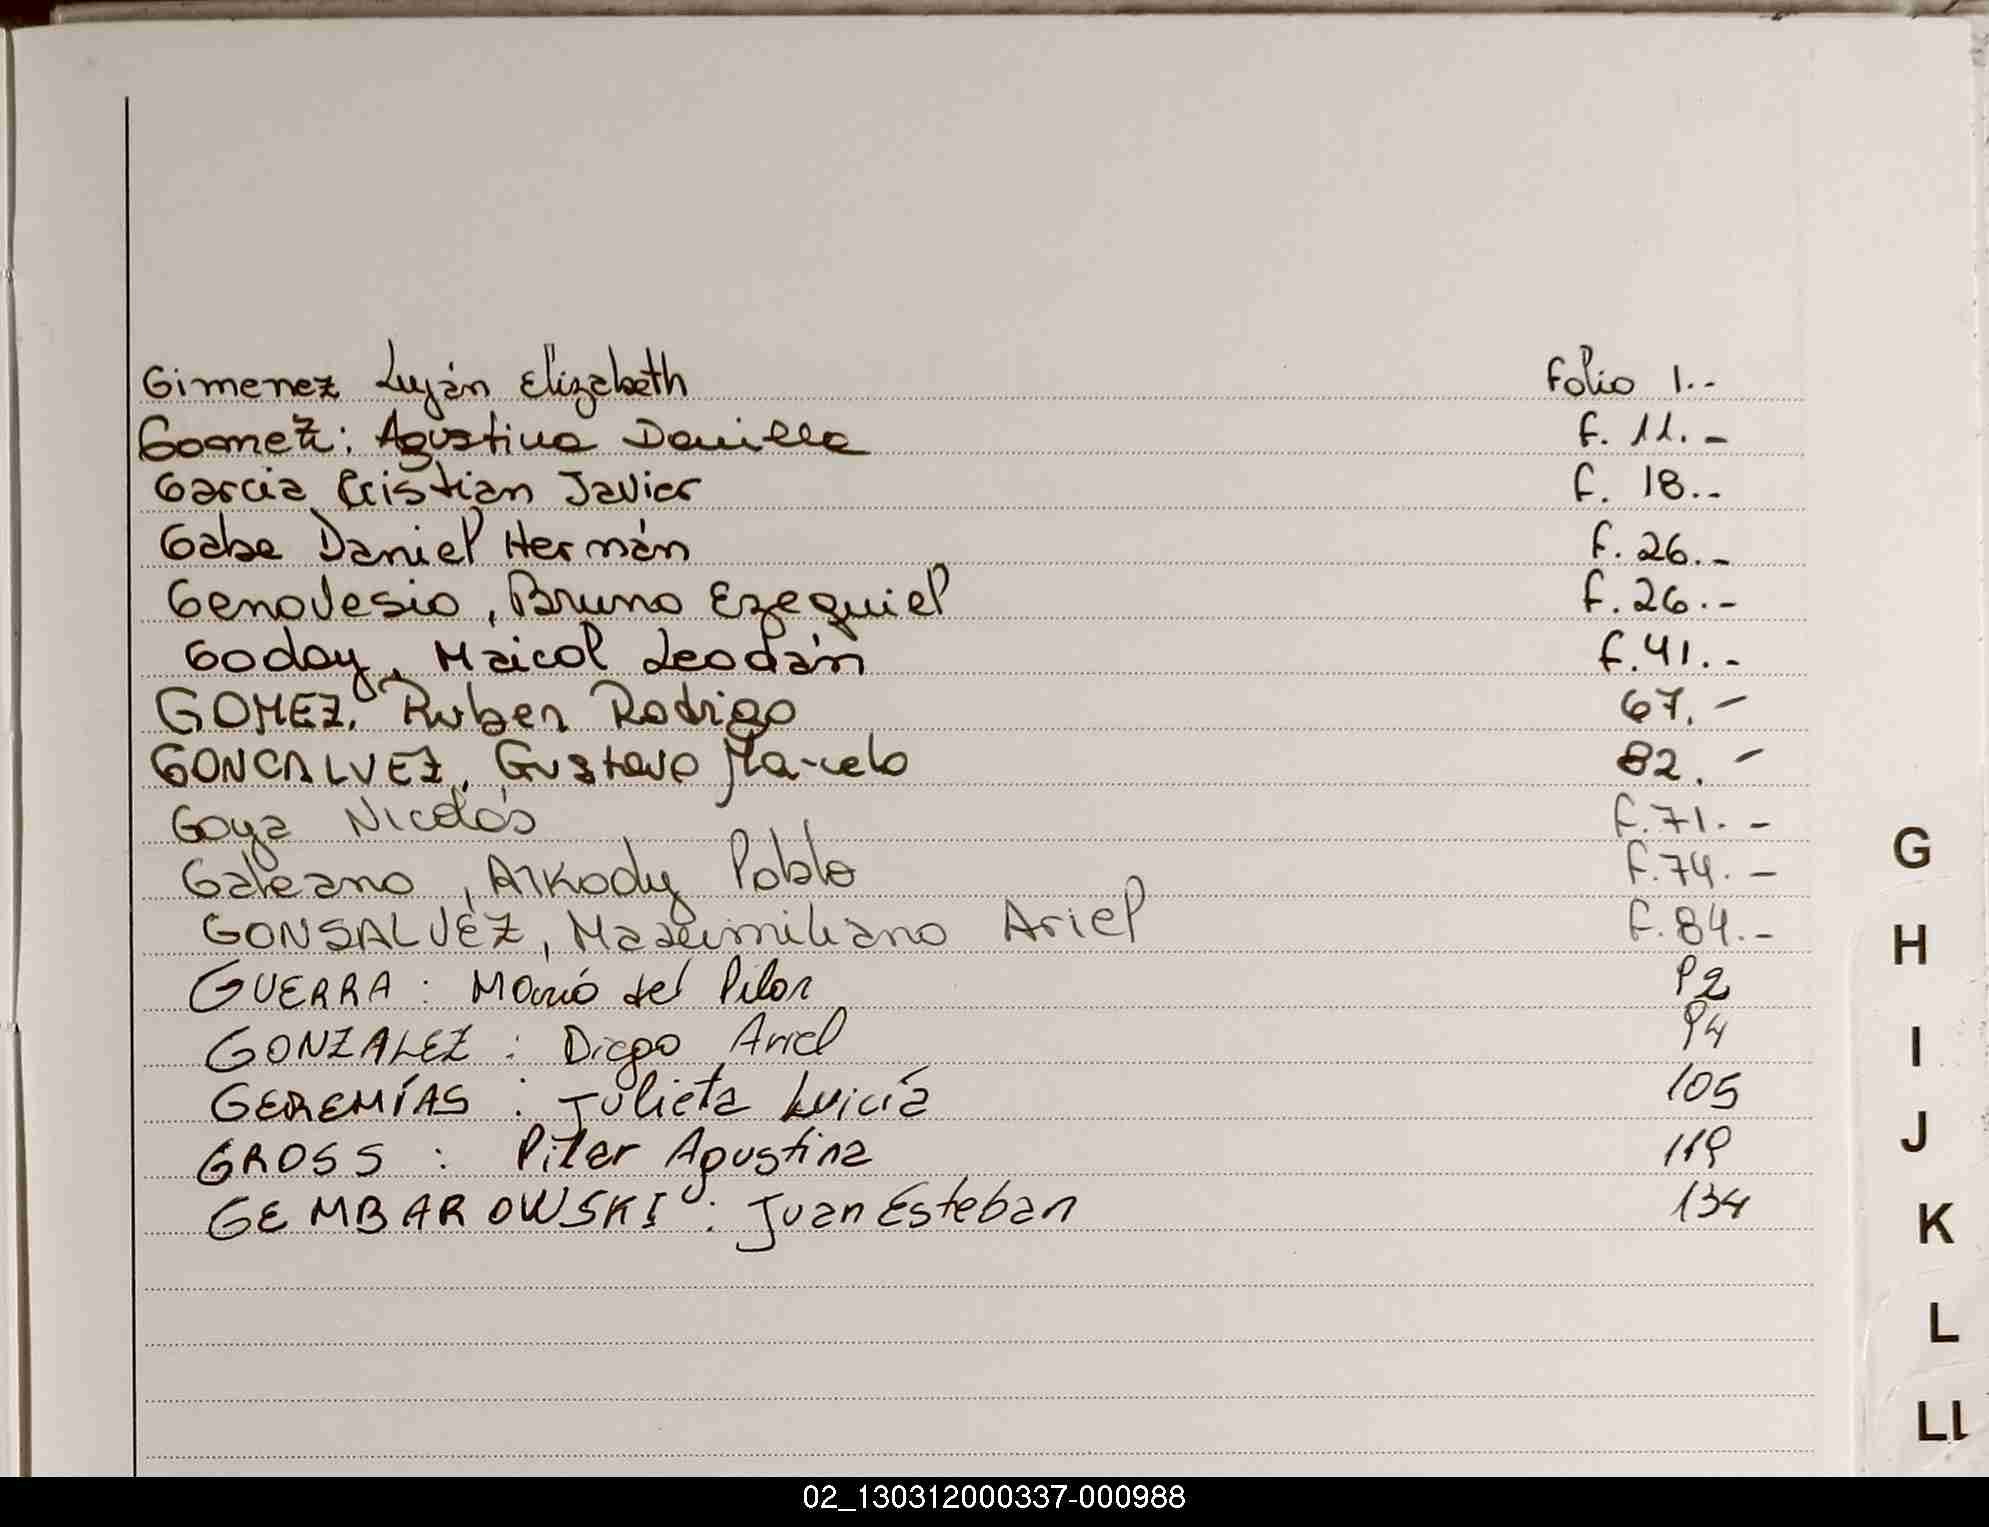 Gimenez Luján Elizabeth Folio 1.-
Gomez: Agustina Daniela F. 11.-
Garcia Cristian Javier F. 18.-
Gabe Daniel Hernán F. 26.-
Genovesio, Bruno Ezequiel F. 26.-
Godoy, Maicol Leodán F. 41.-
GOMEZ, Ruben Rodrigo 67.-
GONCALVEZ, Gustavo Marcelo 82.-
Goya Nicolás F. 71.-
Galeano, Arkady Pablo F. 74.-
GONSALVÉZ, Maximiliano Ariel F. 84.-
GUERRA: María del Pilar 92
GONZALEZ: Diego Ariel 94
GEREMÍAS: Julieta Luicía 105
GROSS: Pilar Agustina 119
GEMBAROWSKI: Juan Esteban 134
G
H
I
J
K
L
LL
02_130312000337-000988